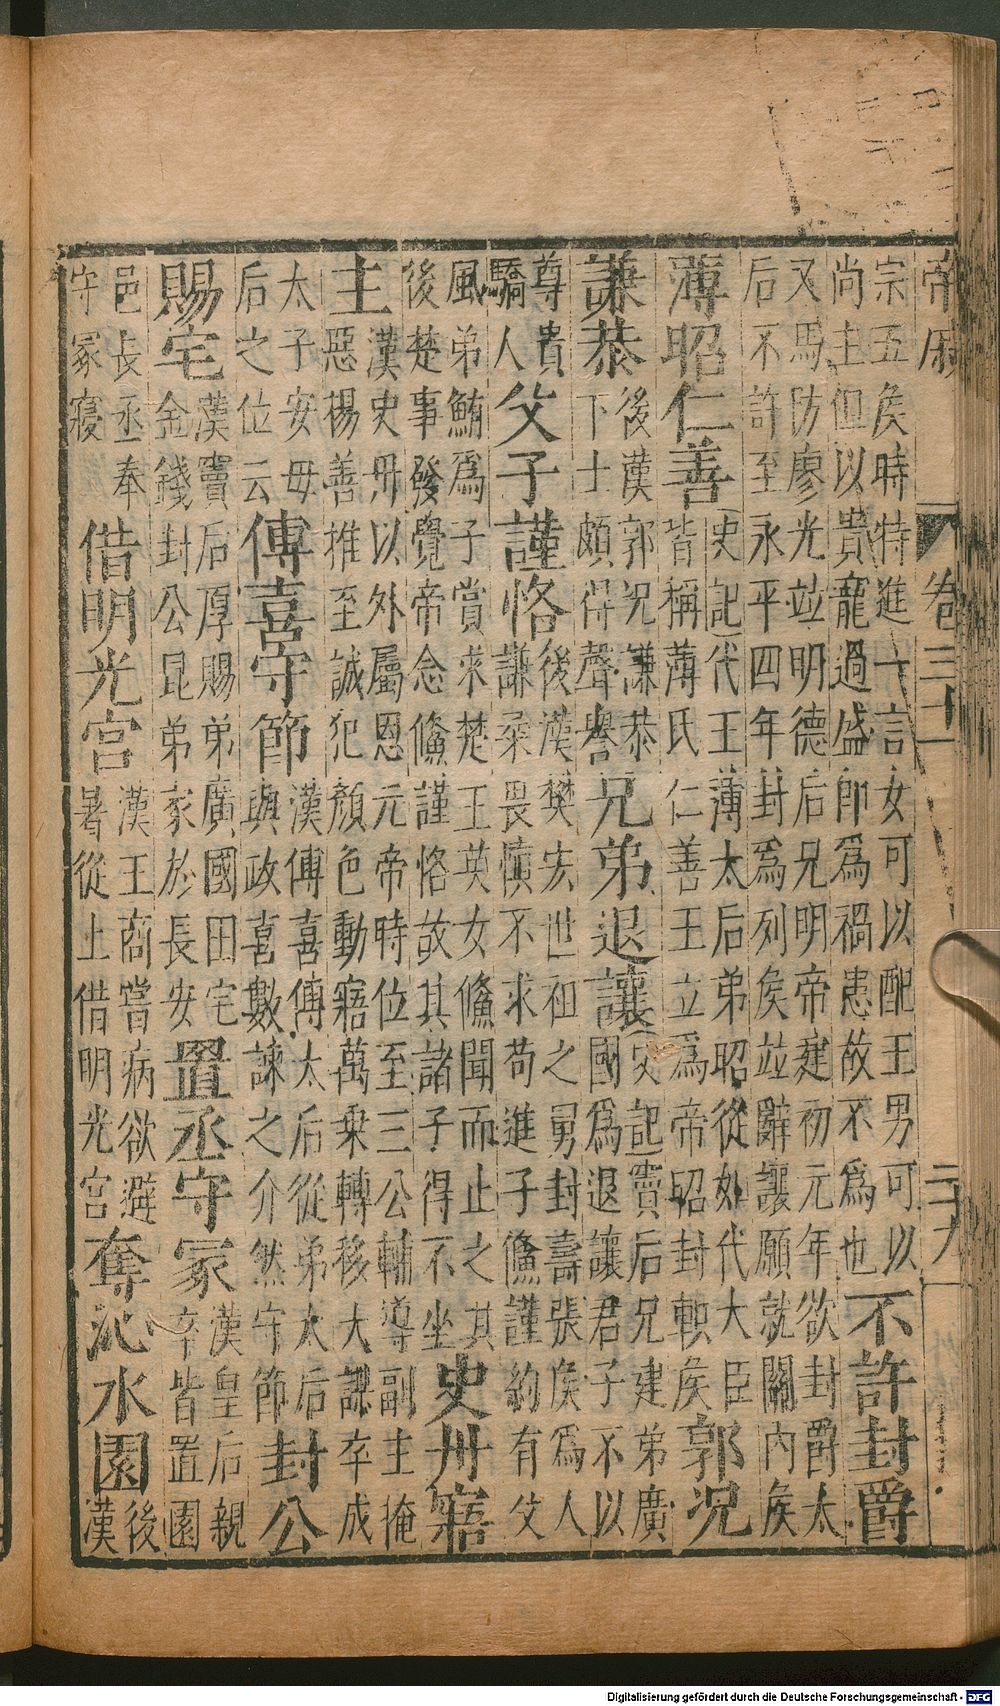 帝戚 卷三十一 二十九
宗五侯時特進一言女可以配王男可以
尚主但以貴寵過盛卽爲禍患故不爲也
不許封爵
又馬防廖光竝明德后兄明帝建初元年欲封爵太
后不許至永平四年封爲列侯竝辭讓願就關內侯
薄昭仁善
史記代王薄太后弟昭從如代大臣
皆稱薄氏仁善王立爲帝昭封軹侯
郭況
謙恭
後漢郭況謙恭
下士頗得聲譽
兄弟退讓
史記竇后兄建弟廣
國爲退讓君子不以
尊貴
驕人
父子謹恪
後漢樊宏世祖之舅封壽張侯爲人
謙柔畏慎不求苟進子鯈謹約有父
風弟鮪爲子賞求楚王英女鯈聞而止之其
後楚事發覺帝念鯈謹恪故其諸子得不坐
史丹寤
主
漢史丹以外屬恩元帝時位至三公輔導副主掩
惡揚善推至誠犯顏色動寤萬乘轉移大謀卒成
太子安母
后之位云
傅喜守節
漢傅喜傅太后從弟太后
與政喜數諫之介然守節
封公
賜宅
漢竇后厚賜弟廣國田宅
金錢封公昆弟家於長安
置丞守冢
漢皇后親
卒皆置園
邑長丞奉
守冢寢
借明光宮
漢王商嘗病欲避
暑從上借明光宮
奪沁水園
後
漢
Digitalisierung gefördert durch die Deutsche Forschungsgemeinschaft - DFG